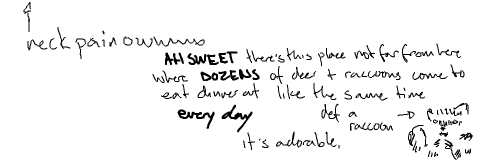 neck pain owwwwo
AH SWEET there's this place not far from here
where DOZENS of deer + raccoons come to
eat dinner at like the same time
every day
def a
raccoon →
it's adorable.